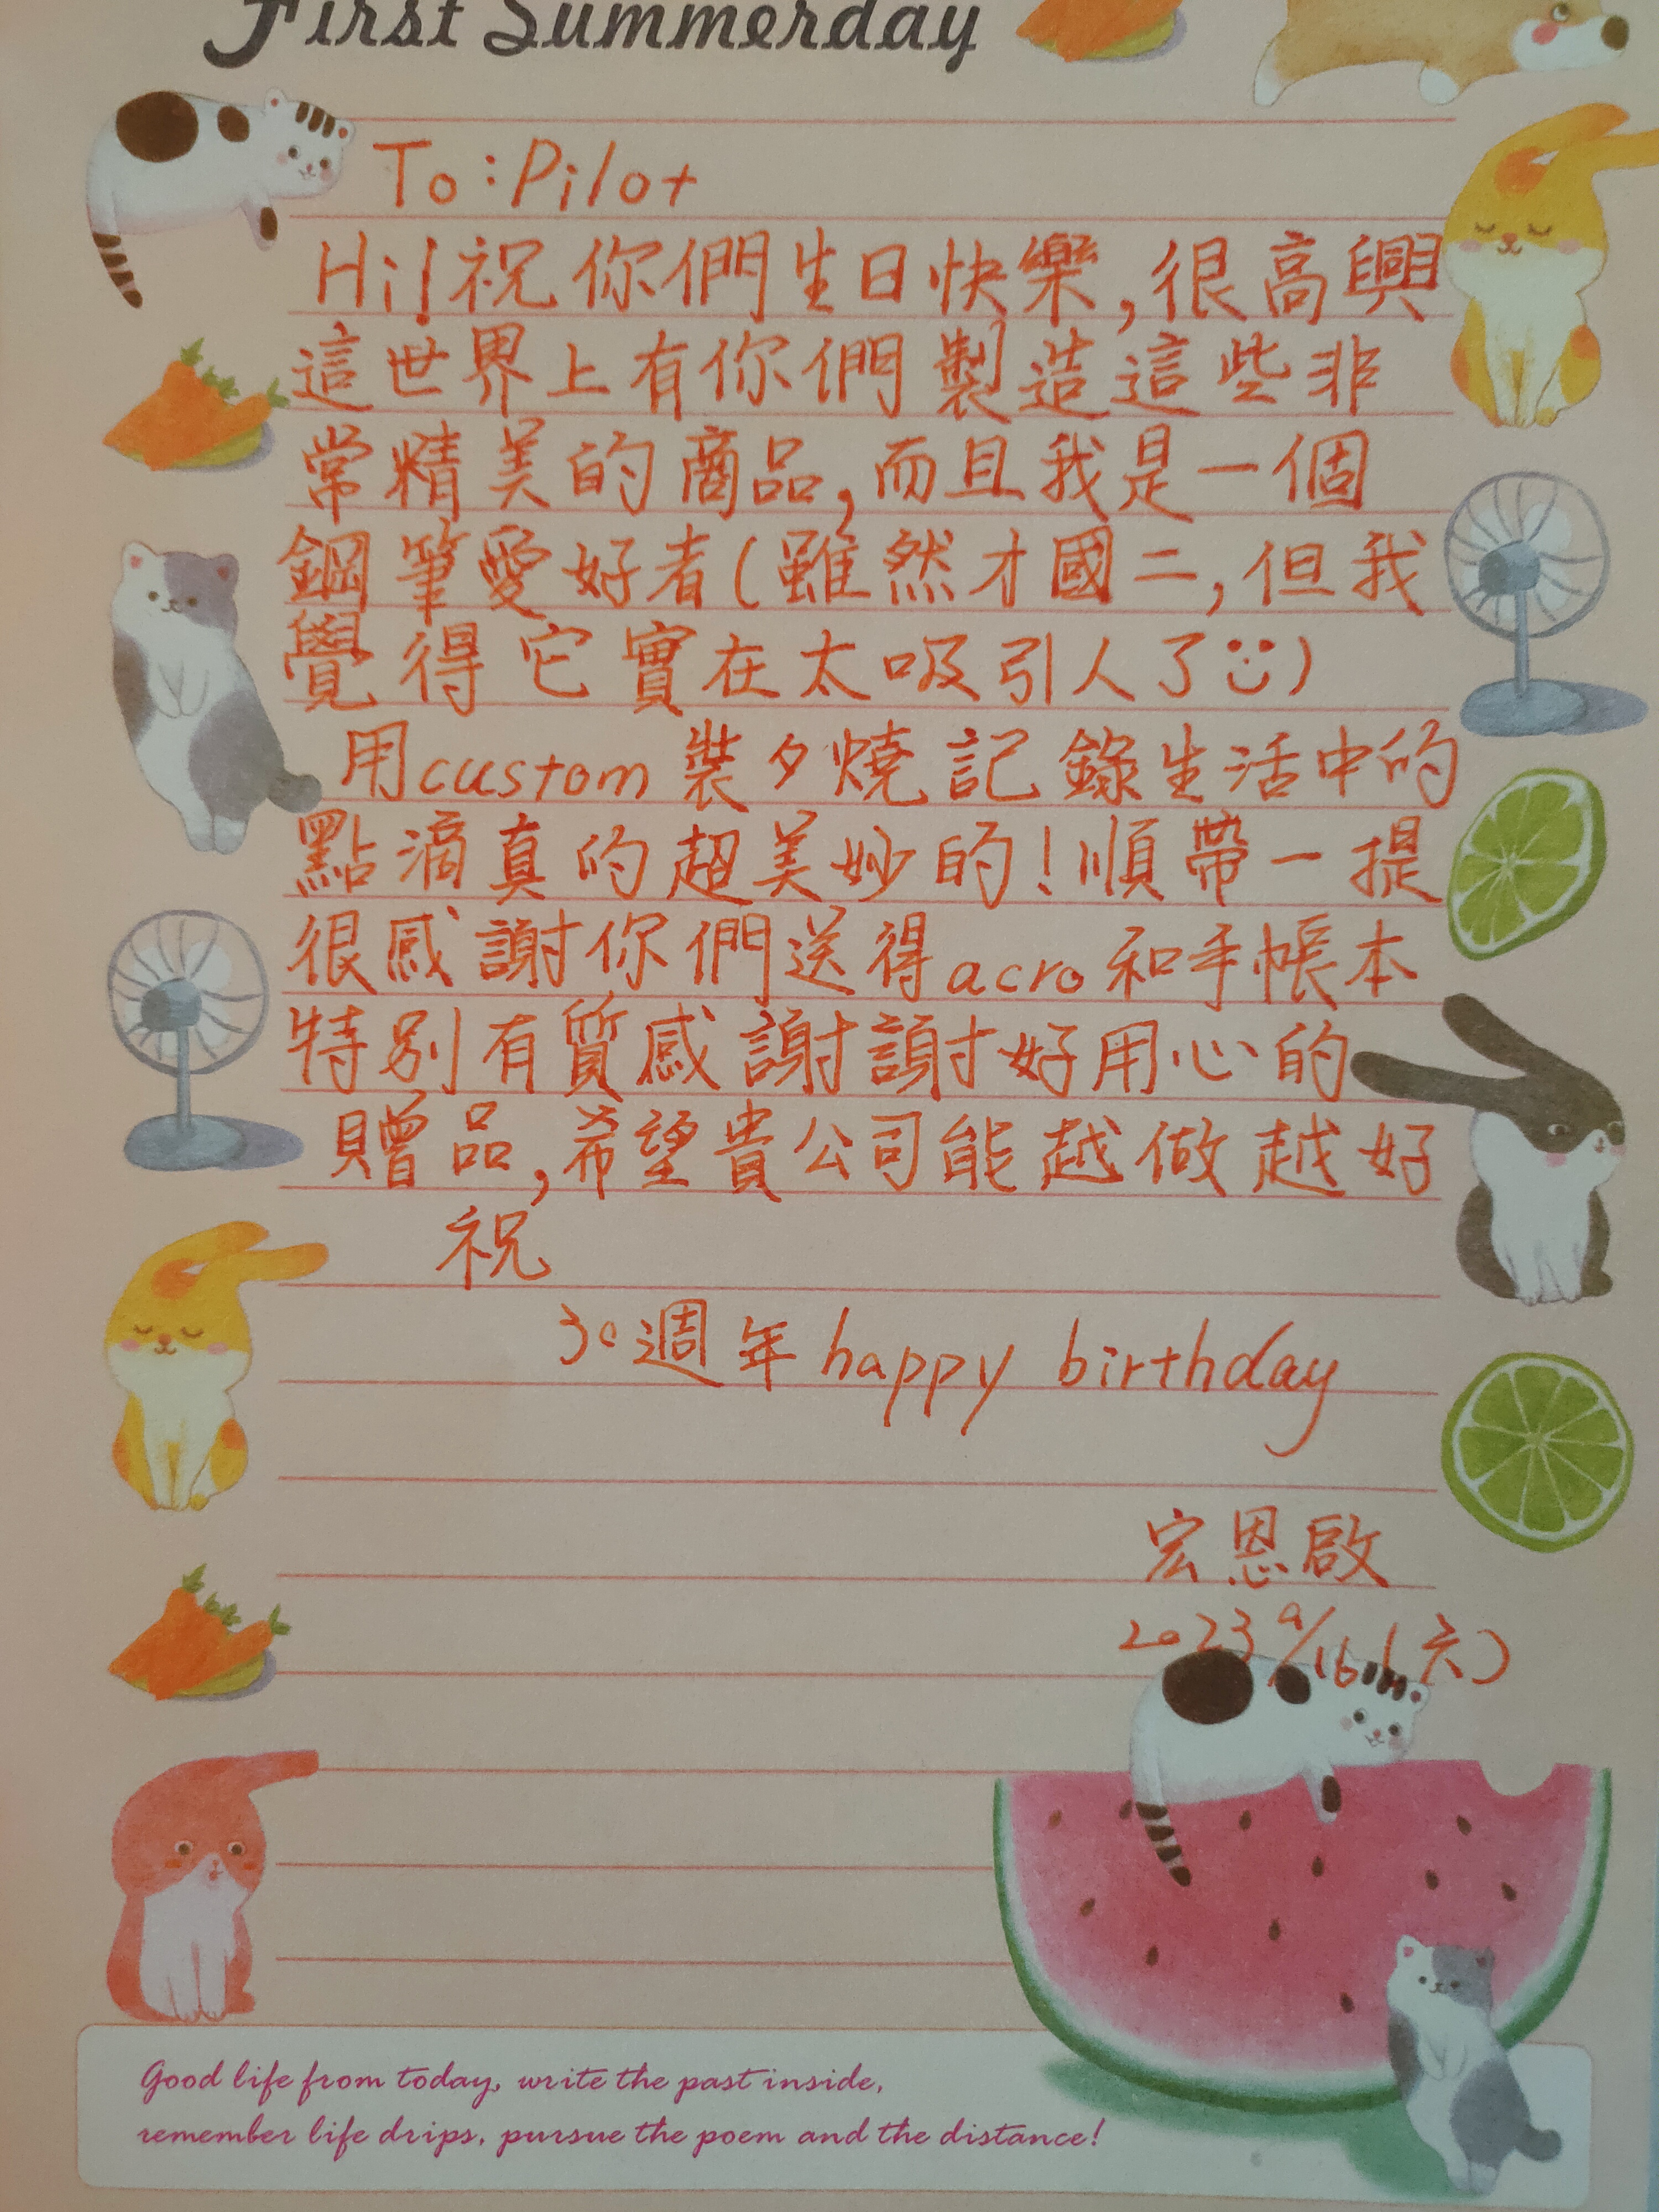 First Summerday
To:Pilot
Hi!祝你們生日快樂,很高興
這世界上有你們製造這些非
常精美的商品,而且我是一個
鋼筆愛好者(雖然才國二,但我
覺得它實在太吸引人了)
用custom裝夕燒記錄生活中的
點滴真的超美妙的!順帶一提
很感謝你們送得acro和手帳本
特別有質感謝謝好用心的
贈品,希望貴公司能越做越好
祝
30週年happy birthday
宏恩啟
2023 9/16(六)
Good life from today, write the past inside,
remember life drips, pursue the poem and the distance!